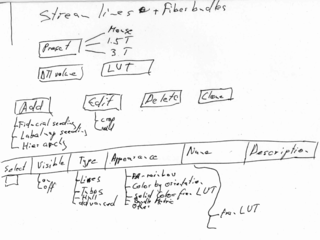 Stream lines + Fiberbundles
Mouse
Preset
1.5 T
3 T
DTI value
LUT
Add
Edit
Delete
Clone
Fiducial seeding
Labelmap seeding
Hierarchy
crop
Select
Visible
Type
Appearance
Name
Description
on
off
Lines
Tubes
Advanced
rainbow
Color by orientation
Solid Color from LUT
Other
from LUT